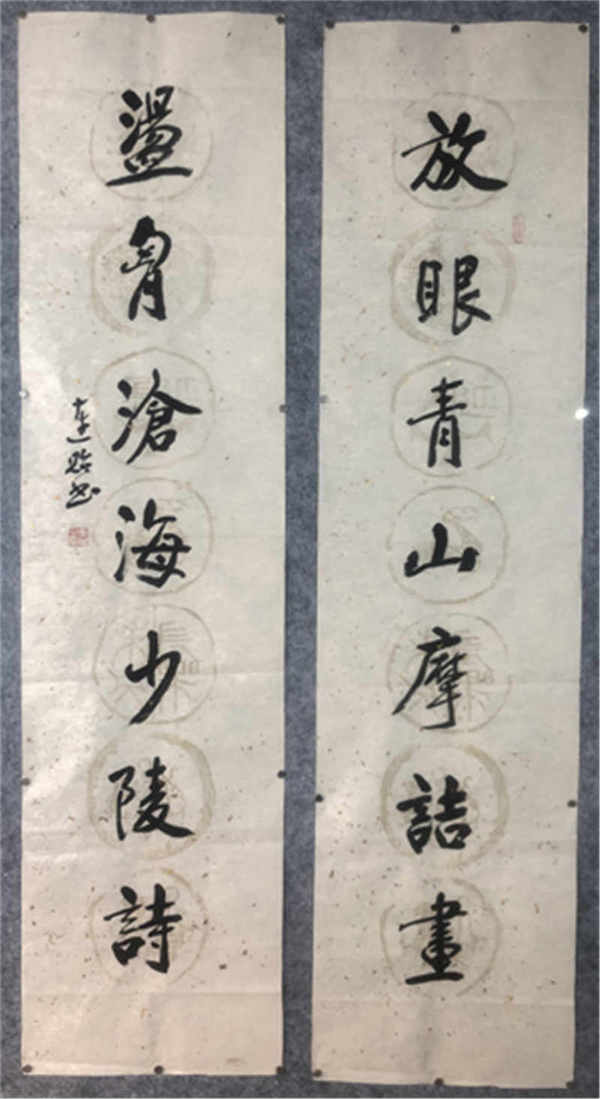 放眼青山摩詰畫
盪胷滄海少陵詩